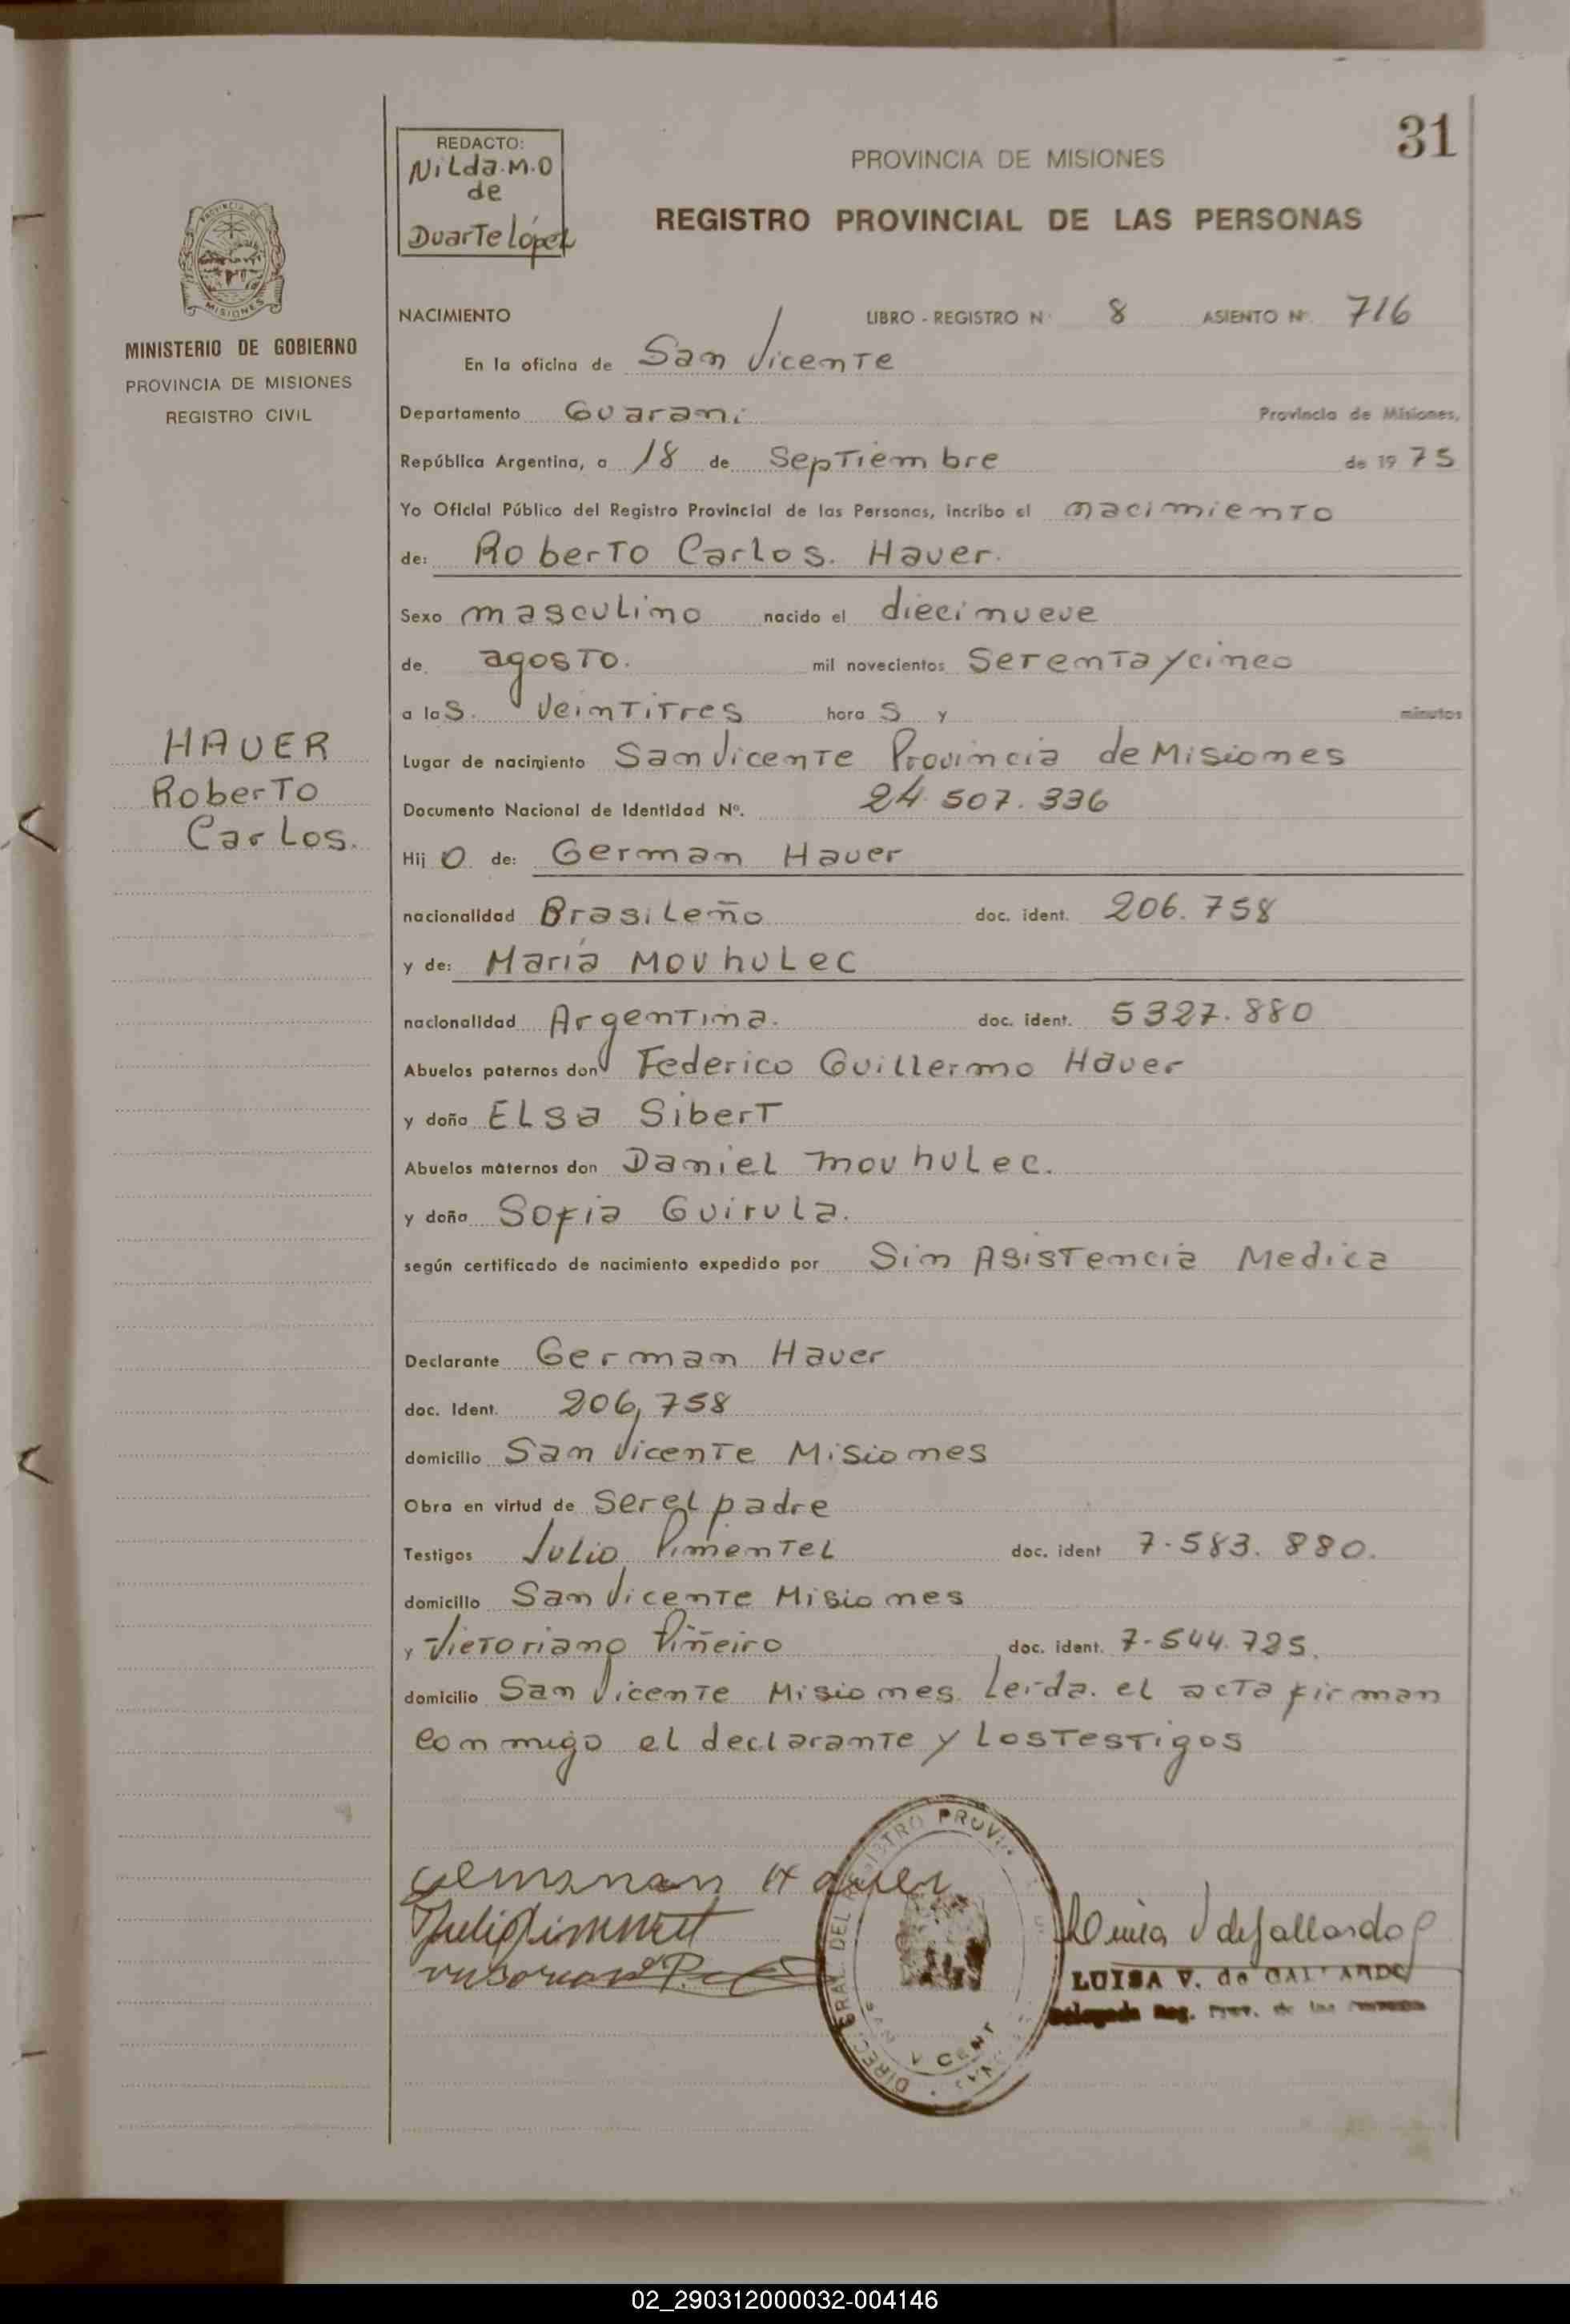 31
REDACTO:
Nilda.M.O
de
Duarte López
PROVINCIA DE MISIONES
REGISTRO PROVINCIAL DE LAS PERSONAS
MISIONES
MINISTERIO DE GOBIERNO
PROVINCIA DE MISIONES
REGISTRO CIVIL
HAUER
Roberto
Carlos.
NACIMIENTO LIBRO - REGISTRO N° 8 ASIENTO N° 716
En la oficina de San Vicente
Departamento Guarani Provincia de Misiones,
República Argentina, a 18 de Septiembre de 1975
Yo Oficial Público del Registro Provincial de las Personas, incribo el nacimiento
de: Roberto Carlos. Hauer.
Sexo masculino nacido el diecinueve
de agosto. mil novecientos Setentaycinco
a las. Veintitres horas y minutos
Lugar de nacimiento San Vicente Provincia de Misiones
Documento Nacional de Identidad Nº. 24.507.336
Hijo de: German Hauer
nacionalidad Brasileño doc. ident. 206.758
y de: María Mouhulec
nacionalidad Argentina. doc. ident. 5327.880
Abuelos paternos don Federico Guillermo Hauer
y doña Elsa Sibert
Abuelos maternos don Daniel mouhulec.
y doña Sofia Guirula.
según certificado de nacimiento expedido por Sin Asistencia Medica
Declarante German Hauer
doc. Ident. 206,758
domicilio San Vicente Misiones
Obra en virtud de Ser el padre
Testigos Julio Pimentel doc. ident 7.583.880.
domicilio San Vicente Misiones
y Victoriano Piñeiro doc. ident. 7-544.725.
domicilio San Vicente Misiones. Leida. el acta firman
conmigo el declarante y los testigos
German Hauer
Luisa V de Gallardo
LUISA V. de GALLARDO
Delegada Reg. Prov. de las Personas
02_290312000032-004146